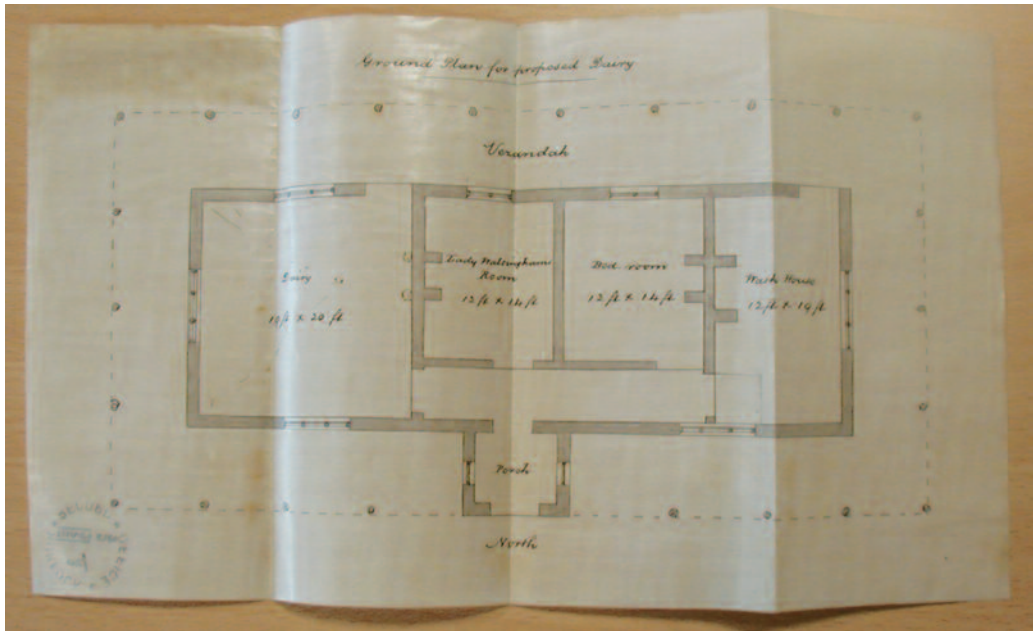 Ground Plan for proposed Dairy
Verandah
Dairy
Lady Walsingham
Room
12 ft x 14 ft
Bed room
12 ft x 14 ft
Wash House
Porch
North